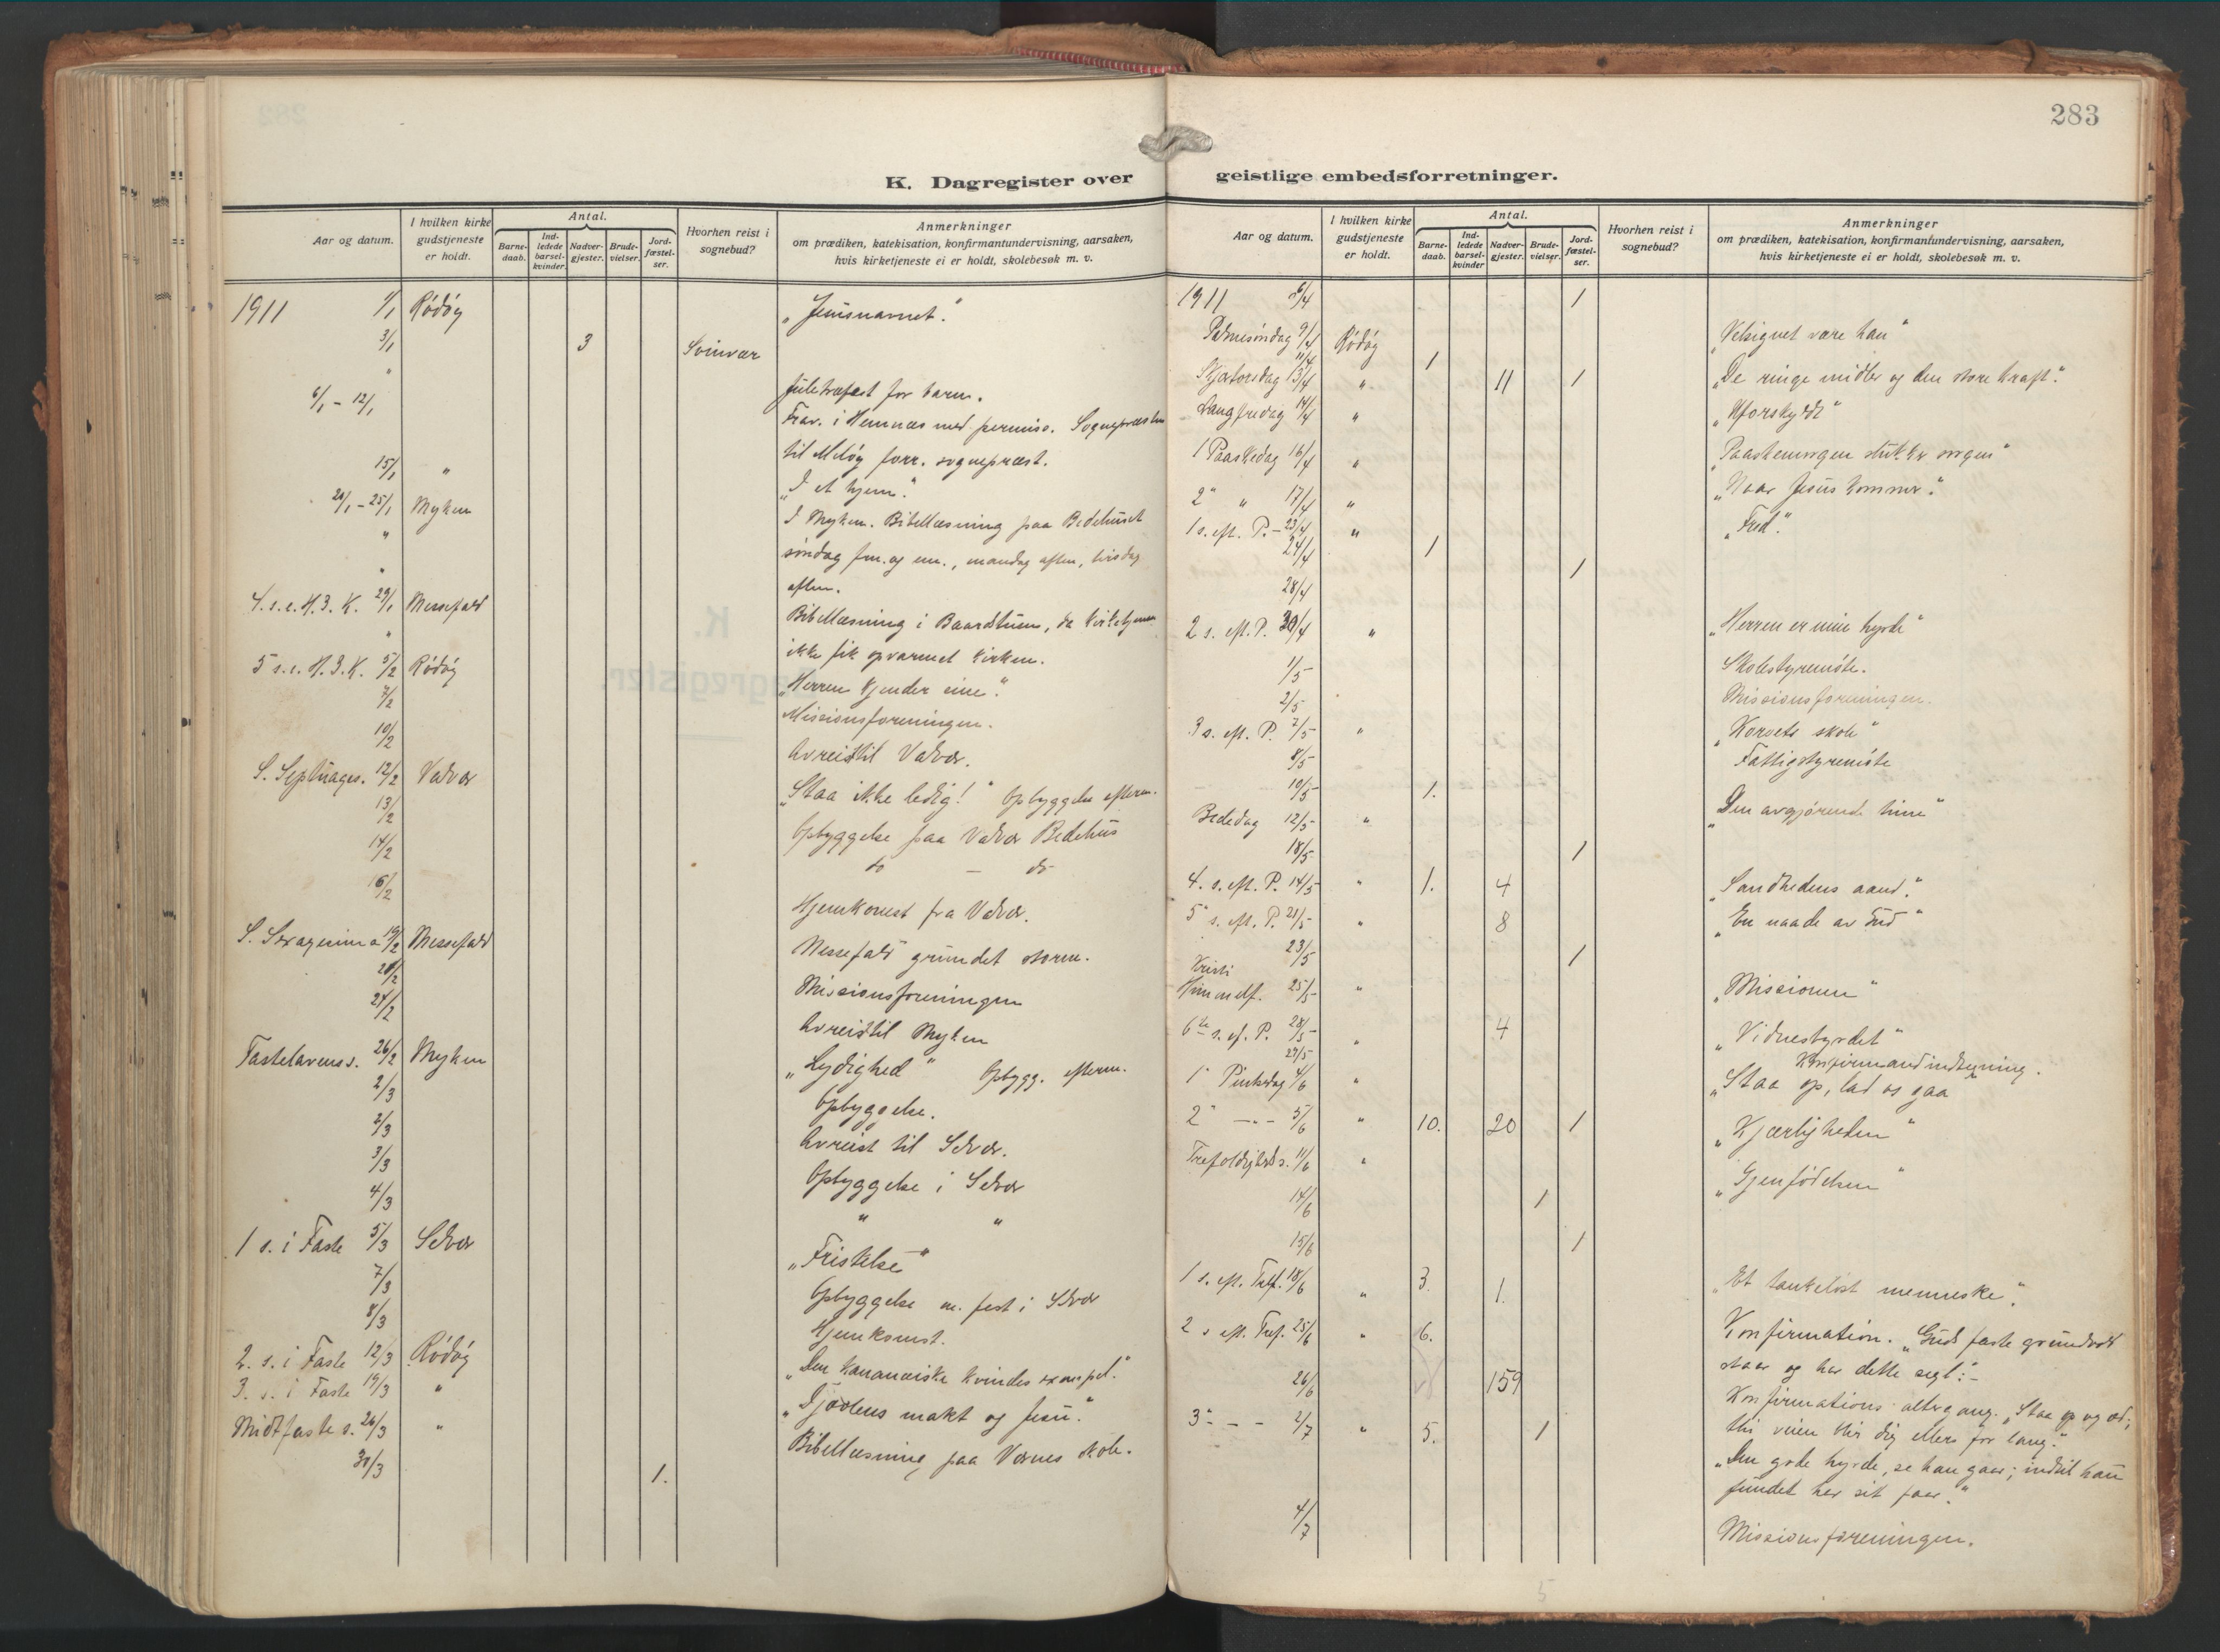 283
K. Dagregister over geistlige embedsforretninger.
Aar og datum.
I hvilken kirke gudstjeneste er holdt.
Antal.
Barne-daab.
Ind-ledede barsel-kvinder.
Nadver-gjester.
Brude-vielser.
Jord-fæstel-ser.
Hvorhen reist i sognebud?
Anmerkninger
om prædiken, katekisation, konfirmantundervisning, aarsaken,
hvis kirketjeneste ei er holdt, skolebesøk m. v.
1911 1/1 Rödöy „Jesusnavnet."
3/1 3 Svinvær
" Juletræfest for barn.
6/1 - 12/1 Frav. i Hemnæs med permiss. Sognepræsten
til Melöy forr. sognepræst.
15/1 " „I et hjem."
21/1 - 25/1 Myken I Myken. Bibellæsning paa Bedehuset
" söndag fm. og em., mandag aften, tirsdag
" aften.
4. s. e. H. 3. K. 29/1 Messefald Bibellæsning i Baardstuen, da kirketjeneren
" ikke fik opvarmet kirken.
5 s. e. H. 3. K. 5/2 Rödöy „Herren kjender sine."
7/2 Missionsforeningen.
10/2 Avreist til Valvær.
S. Septuages. 12/2 Valvær „Staa ikke ledig!" Opbyggelse efterm.
13/2 Opbyggelse paa Valvær Bedehus
14/2 do — do
16/2 Hjemkomst fra Valvær.
S. Sexagesima 19/2 Messefald Messefald grundet storm.
2/2 Missionsforeningen
24/2 Avreist til Myken
Fastelavenss. 26/2 Myken „Lydighed" Opbygg. efterm.
2/3 Opbyggelse.
2/3 Avreist til Selvær.
3/3 Opbyggelse i Selvær
4/3 " "
1 s. i Faste 5/3 Selvær „Fristelse"
7/3 Opbyggelse m. fest i Selvær
8/3 Hjemkomst.
2. s. i Faste 12/3 Rödöy „Den kananæiske kvindes exempel."
3. s. i Faste 19/3 " „Djævlens makt og Jesu."
Midtfaste s. 26/3 " Bibellæsning paa Værnes skole.
31/3 1.
Aar og datum.
I hvilken kirke gudstjeneste er holdt.
Antal.
Barne-daab.
Ind-ledede barsel-kvinder
Nadver-gjester.
Brude-vielser.
Jord-fæstel-ser.
Hvorhen reist i sognebud?
Anmerkninger
om prædiken, katekisation, konfirmantundervisning, aarsaken,
hvis kirketjeneste ei er holdt, skolebesøk m. v.
1911 6/4 1
Palmesöndag 9/4 Rödöy „Velsignet være han"
11/4 1
Skjærtorsdag 13/4 " 11 1 „De ringe midler og den store kraft."
Langfredag 14/4 " „Uforskyldt"
1 Paaskedag 16/4 " „Paaskemorgen slukker sorgen"
2" " 17/4 " „Naar Jesus kommer."
1 s. eft. P. - 23/4 " „Fred."
24/4 1
28/4 1
2 s. eft. P. 30/4 " „Herren er min hyrde"
1/5 Skolestyremöte.
2/5 Missionsforeningen.
3 s. eft. P. 7/5 " „Korsets skole"
8/5 Fattigstyremöte
10/5 1.
Bededag 12/5 " „Den avgjörende time"
18/5 1
4. s. eft. P. 14/5 " 1. 4 „Sandhedens aand."
5" s. eft. P. 21/5 " 8 „En naade av Gud"
23/5 1
Kristi Himmelf. 25/5 " „Missionen"
6te s. ef. P. 28/5 " 4 „Vidnesbyrdet"
29/5 Konfirmandindtegning.
1" Pintsdag 4/6 " „Staa op, lad os gaa"
2" -"- 5/6 " 10. 20 1 „Kjærligheden"
Trefoldigheds s. 11/6 " „Gjenfödelsen"
14/6 1
15/6 1
1 s. eft. Tref. 18/6 " 3. 1. „Et tankelöst menneske."
2 s eft. Tref. 25/6 " 6. Konfirmation. „Guds faste grundvold
staar og har dette segl:-
26/6 159 Konfirmations altergang. „Staa op og æd;
thi veien blir dig ellers for lang."
3" - - 2/7 " 5. 1 „Den gode hyrde, se han gaar; indtil han
fundet har sit faar."
4/7 Missionsforeningen.
5